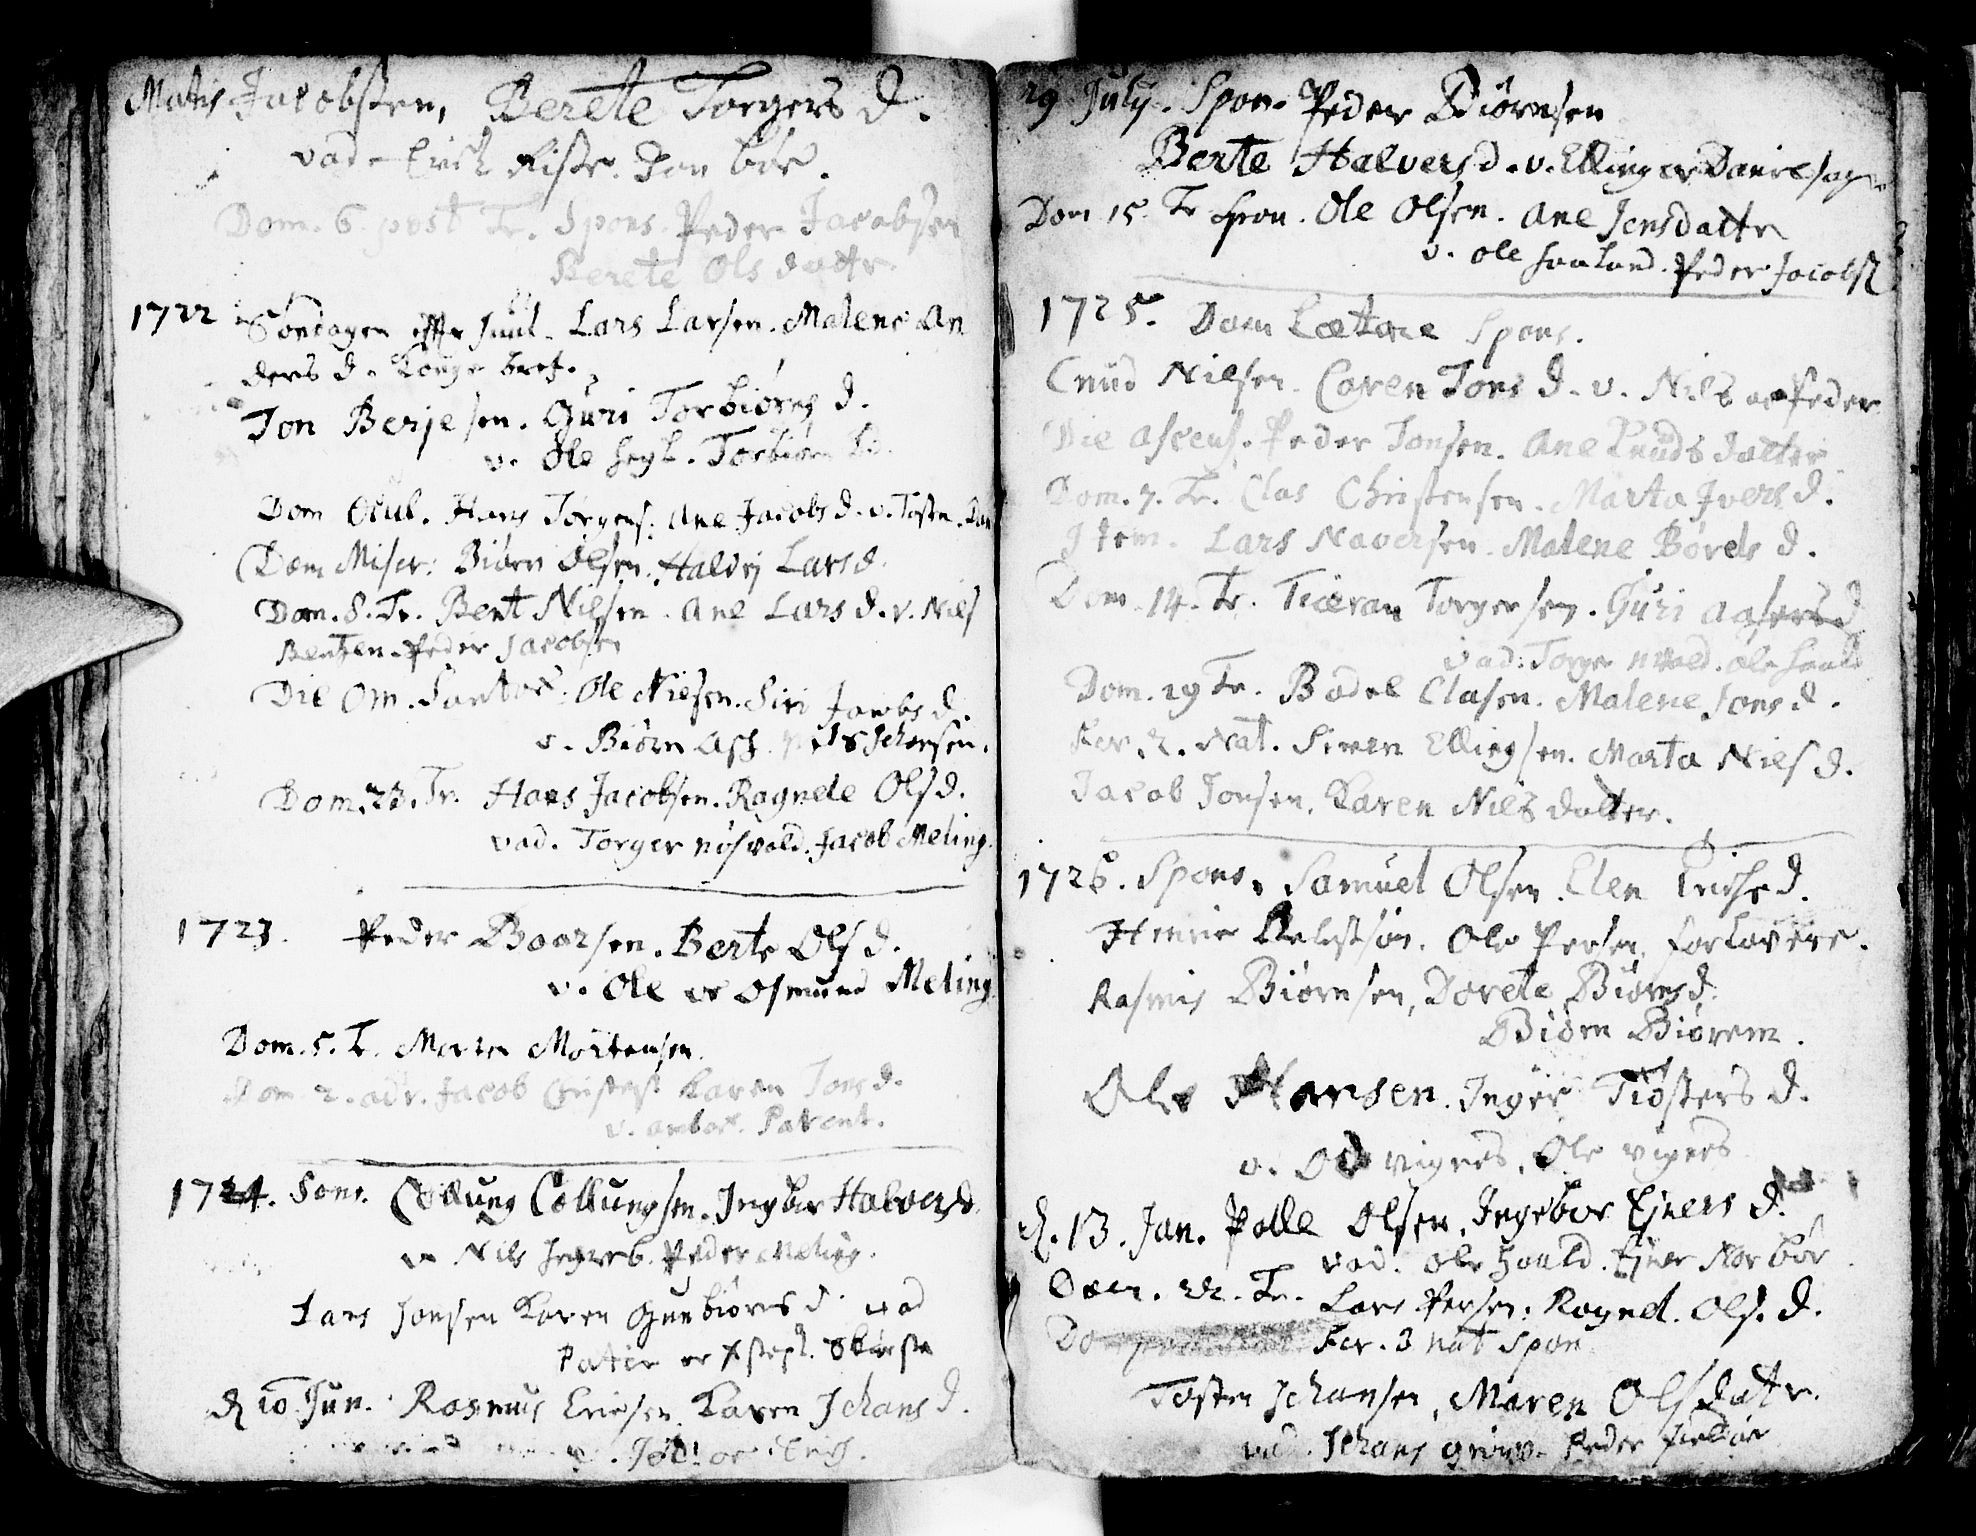 Matis Jacobsen, Berete Torgers d.
vad. Erich Riste. Jon bør.
Dom. 6 post Tr. Spons. Peder Jacobsen
Berete Olsdattr.
1722 Søndagen efftr Juul. Lars Larsen. Malene An
ders d. Konge bref.
Jon Berjesen. Guri Torbiørns d.
v. Ole Torbiørn
Dom Ocul. Hans Jørgens: Ane Jacobs d. v. Tosten.
Dom Miser: Biørn Olsen. Halvej Lars d.
Dom. 8. Tr. Bent Nilsen. Ane Lars d. v. Nils
Bentzen. Peder Jacobsen
Die Om. Sanctor. Ole Nilsen. Siri Jacobs d.
v. Biørn Nils Johansen.
Dom. 23. Tr. Hans Jacobsen. Ragnele Ols d.
vad. Torger nøsvold. Jacob Meling.
1723. Peder Boorsen. Berte Ols d.
v. Ole oc Osmund Meling
Dom. 5. Tr. Morten Mortensen.
Dom 2. adv. Jacob Christens Karen Jons d.
v. Parent.
1724. Sons. Collung Collungsen. Ingbor Halvers d.
v. Nils Peder Meling.
Lars Jonsen Karen Gunbiørns d. vad
Pater oc
d 10 Jun. Rasmus Ericsen. Karen Johans d.
v. oc Erich.
29 July. Spon. Peder Biørnsen
Berte Halvers d. v. Elling oc Daniel
Dom 15. Tr spon. Ole Olsen. Ane Jensdattr
v. Ole Peder Jacobs
1725. Dom Lætare Spons.
Cnud Nilsen. Caren Jons d. v. Nils oc Peder
Die Ascens. Peder Jonsen. Ane Knuds datter
Dom. 7. Tr. Clas Christensen. Marta Ivers d.
Item. Lars Naversen. Malene Børels d.
Dom. 14. Tr. Tiæran Torgersen. Guri
vad: Torger Ole
Dom. 19 Tr. Bodel Clasen. Malene Jons d.
Fer. 2. Nat. Simen Ellingsen. Marta Nils d.
Jacob Jonsen. Karen Nils datter.
1726. Spons. Samuel Olsen. Elen Erichs d.
Ole Persen forlovere.
Rasmis Biørnsen, Dorete Biørns d.
Biørn Biørem.
Ole Hansen. Inger Tiøsters d.
v. Od vignes. Ole vignes
d. 13. Jan. Palle Olsen. Ingebor Ejners d.
vad. Ole Ejner Nor bør
Dom. 22. Tr. Lars Persen: Ragnel. Ols. d.
Do Fer. 3 nat Spon
Tosten Johansen, Maren Olsdatr.
vad. Johans Peder